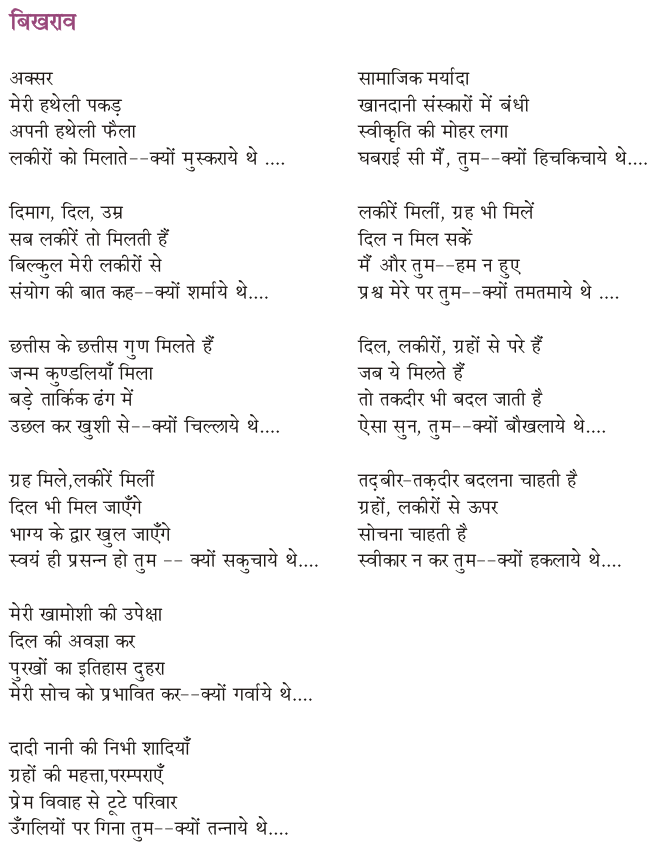 बिखराव
अक्सर
मेरी हथेली पकड़
अपनी हथेली फैला
लकीरों को मिलाते--क्यों मुस्कराये थे ....
दिमाग, दिल, उम्र
सब लकीरें तो मिलती हैं
बिल्कुल मेरी लकीरों से
संयोग की बात कह--क्यों शर्माये थे....
छत्तीस के छत्तीस गुण मिलते हैं
जन्म कुण्डलियाँ मिला
बड़े तार्किक ढंग में
उछल कर खुशी से--क्यों चिल्लाये थे....
ग्रह मिले,लकीरें मिलीं
दिल भी मिल जाएँगे
भाग्य के द्वार खुल जाएँगे
स्वयं ही प्रसन्न हो तुम -- क्यों सकुचाये थे....
मेरी खामोशी की उपेक्षा
दिल की अवज्ञा कर
पुरखों का इतिहास दुहरा
मेरी सोच को प्रभावित कर--क्यों गर्वाये थे....
दादी नानी की निभी शादियाँ
ग्रहों की महत्ता,परम्पराएँ
प्रेम विवाह से टूटे परिवार
उँगलियों पर गिना तुम--क्यों तन्नाये थे....
सामाजिक मर्यादा
खानदानी संस्कारों में बंधी
स्वीकृति की मोहर लगा
घबराई सी मैं, तुम--क्यों हिचकिचाये थे....
लकीरें मिलीं, ग्रह भी मिलें
दिल न मिल सकें
मैं और तुम--हम न हुए
प्रश्न मेरे पर तुम--क्यों तमतमाये थे ....
दिल, लकीरों, ग्रहों से परे हैं
जब ये मिलते हैं
तो तकदीर भी बदल जाती है
ऐसा सुन, तुम--क्यों बौखलाये थे....
तद़बीर-तक़दीर बदलना चाहती है
ग्रहों, लकीरों से ऊपर
सोचना चाहती है
स्वीकार न कर तुम--क्यों हकलाये थे....